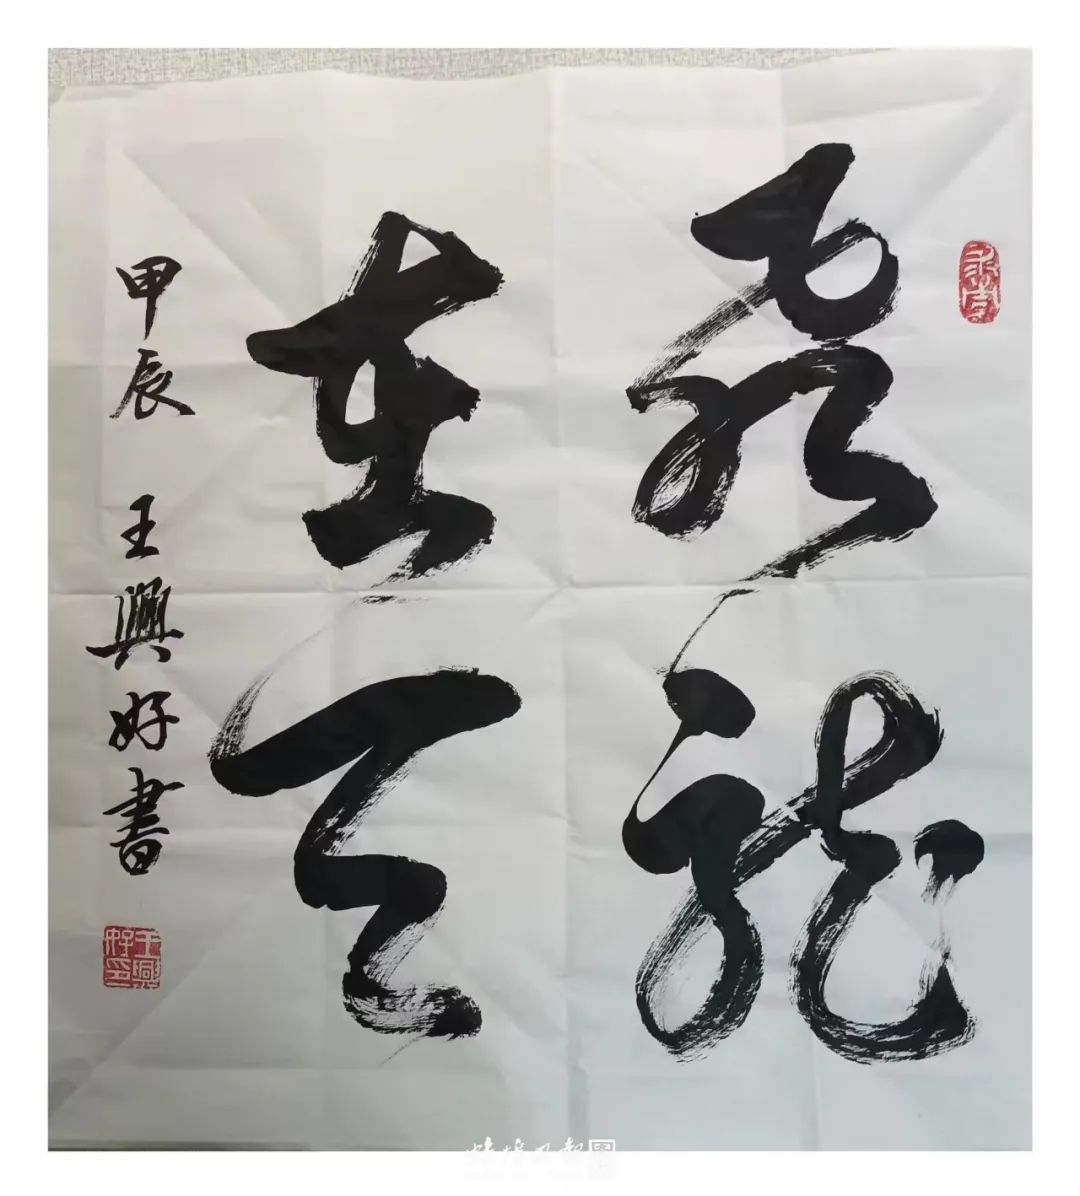 飛龍
在天
甲辰 王興好書
王興好印